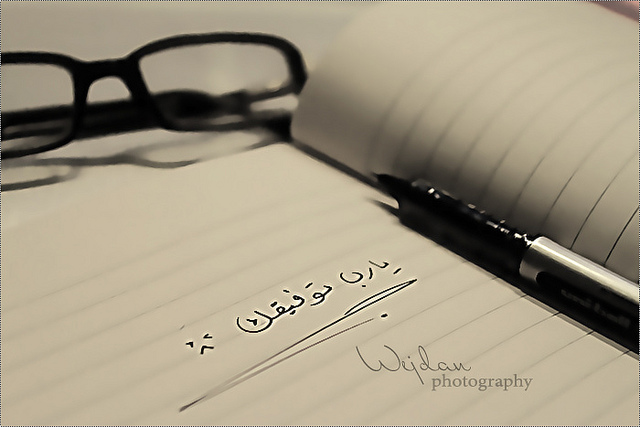 يارب توفيقك ^^"
Wejdan
photography